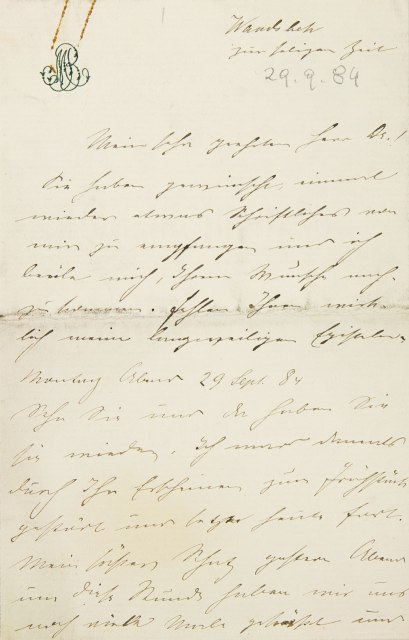 Wandsbek
zur seligen Zeit
29.9.84
Mein sehr geehrter Herr Dr.!
Sie haben gewünscht, einmal
wieder etwas Schriftliches von
mir zu empfangen und ich
beeile mich, Ihrem Wunsche nach-
zukommen. Fehlen Ihnen wirk-
lich meine langweiligen Episteln
Montag Abend 29 Sept. 84
Sehn Sie und da haben Sie
sie wieder. Ich war damals
durch Ihr Erscheinen zum Frühstück
gestört und setze heute fort.
Mein süßer Schatz gestern Abend
um diese Stunde haben wir uns
noch viele Male geküßt und